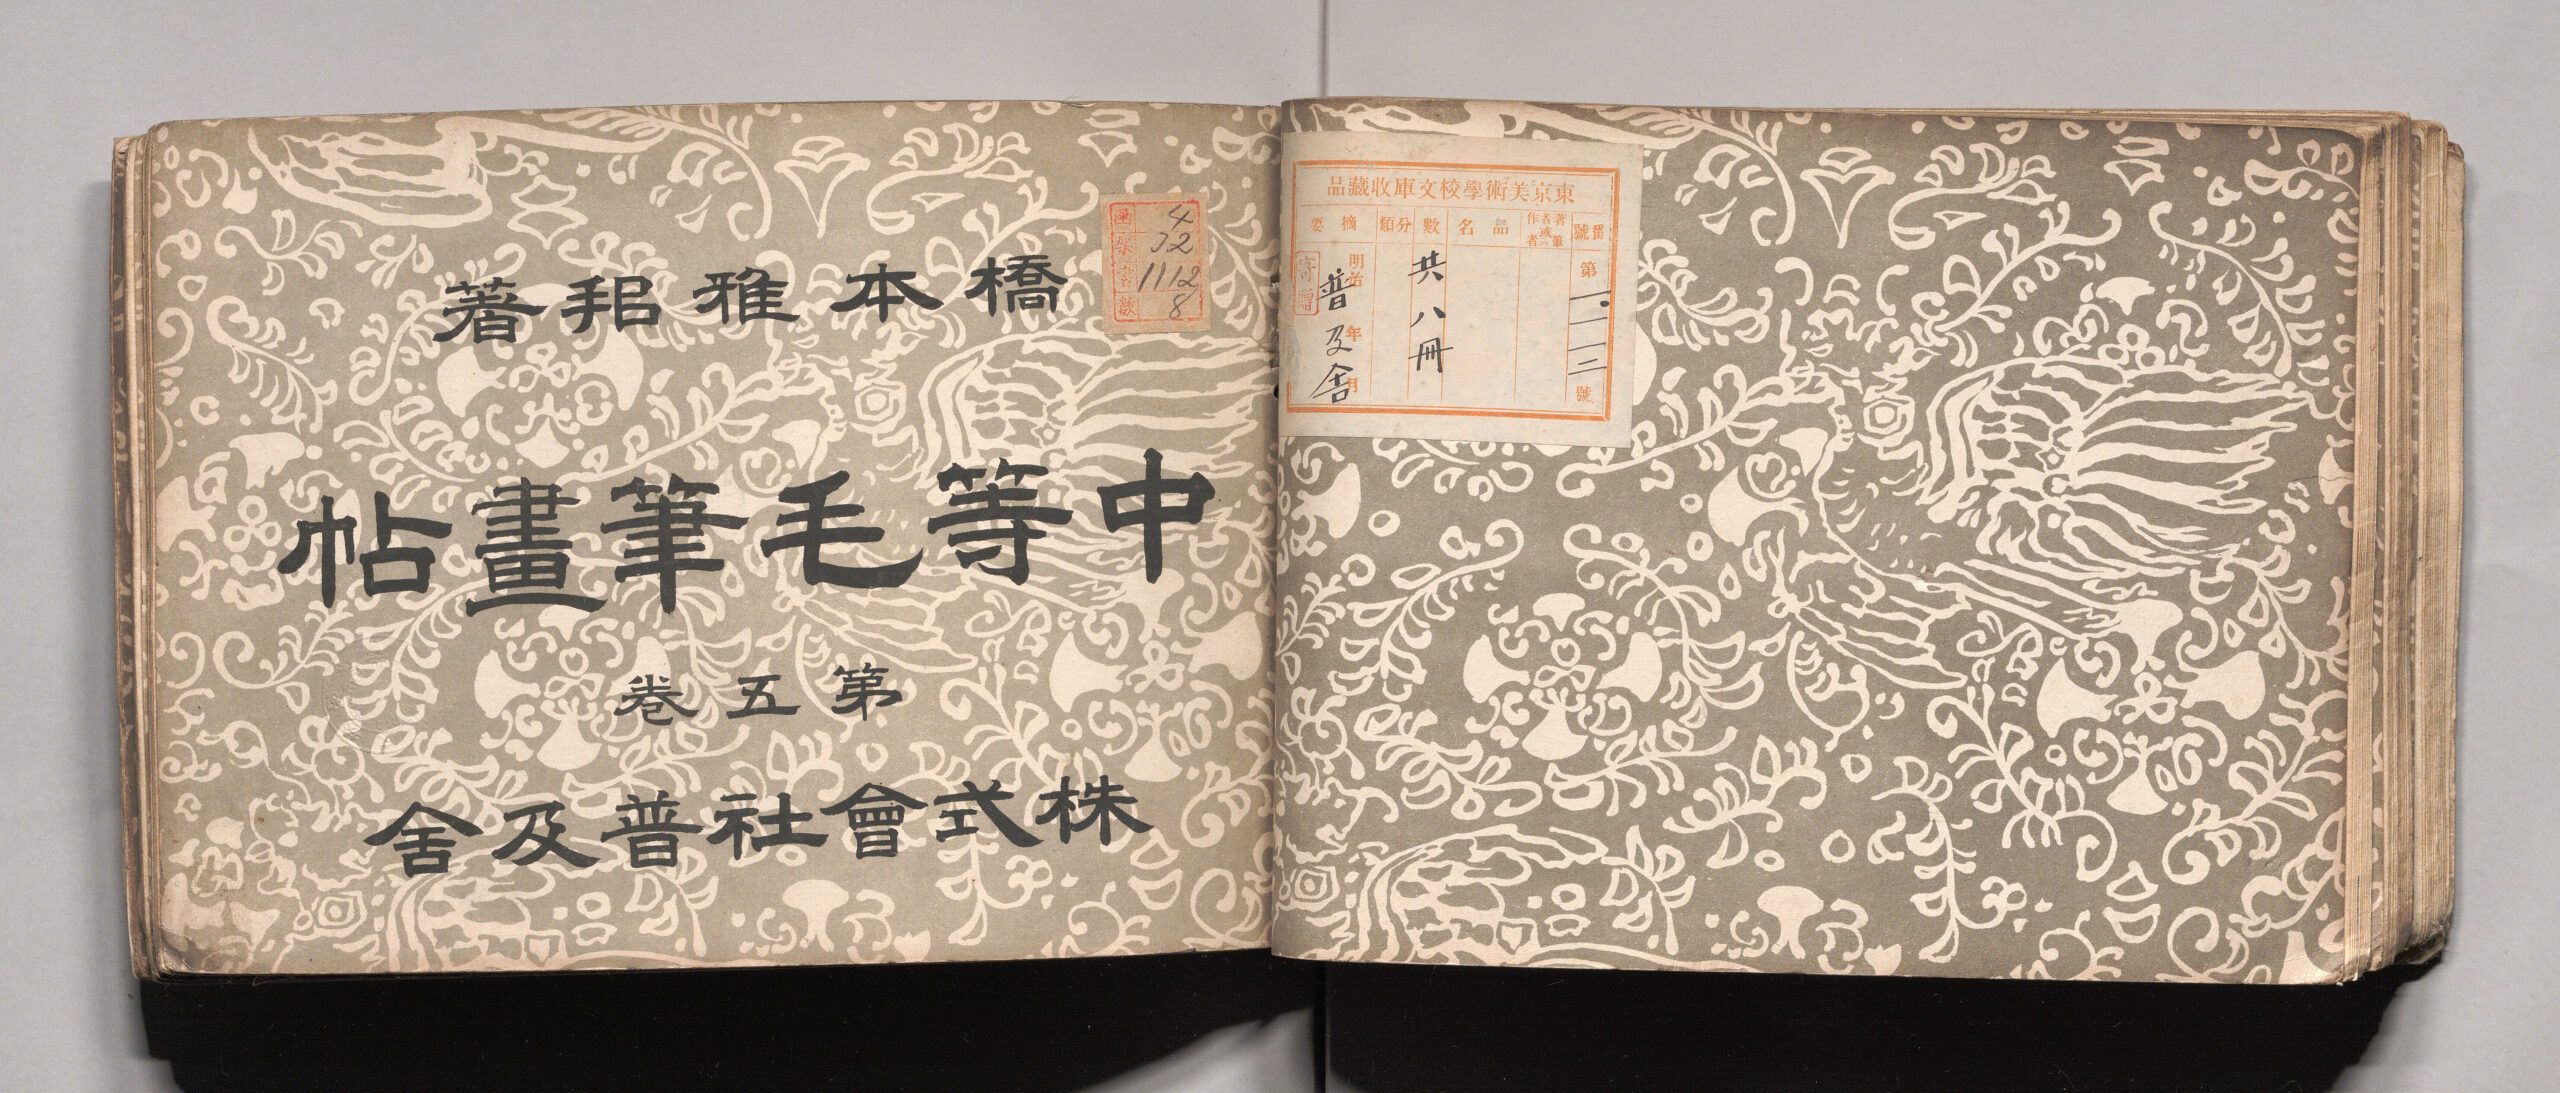 橋本雅邦著
中等毛筆畫帖
第五卷
株式會社普及舍
函架書數
4
32
1112
8
東京美術學校文庫收藏品
番號
著者或筆者
作者
品名
數
分類
摘要
第
號
共八冊
明治 年 月
普及舍
寄贈